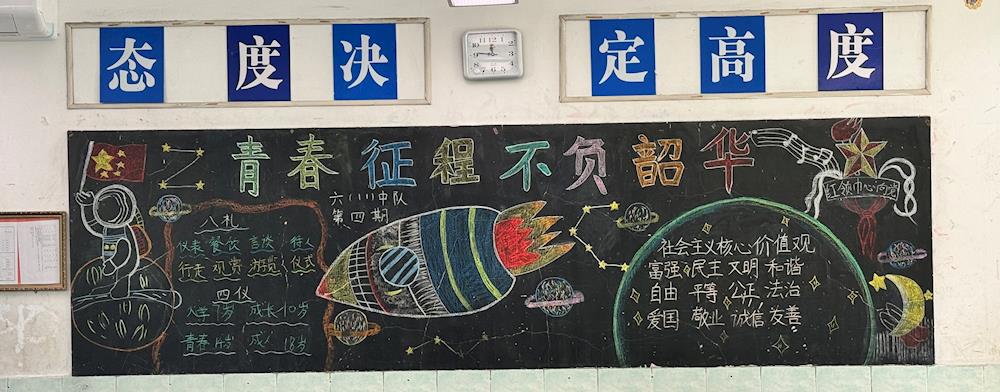 态度决
定高度
青春征程 不负韶华
六(1)中队
第四期
红领巾心向党
八礼
仪表 餐饮 言谈 待人
行走 观赏 游览 仪式
四仪
入学 7岁 成长 10岁
青春 14岁 成人 18岁
社会主义核心价值观
富强 民主 文明 和谐
自由 平等 公正 法治
爱国 敬业 诚信 友善